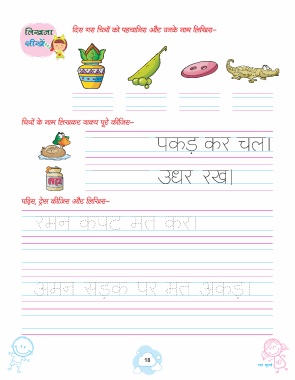 लिखना
सीखें
दिए गए चित्रों को पहचानिए और उनके नाम लिखिए–
चित्रों के नाम लिखकर वाक्य पूरे कीजिए–
पकड़ कर चल।
उधर रख।
पढ़िए, ट्रेस कीजिए और लिखिए–
रमन कपट मत कर।
अमन सड़क पर मत अकड़।
18